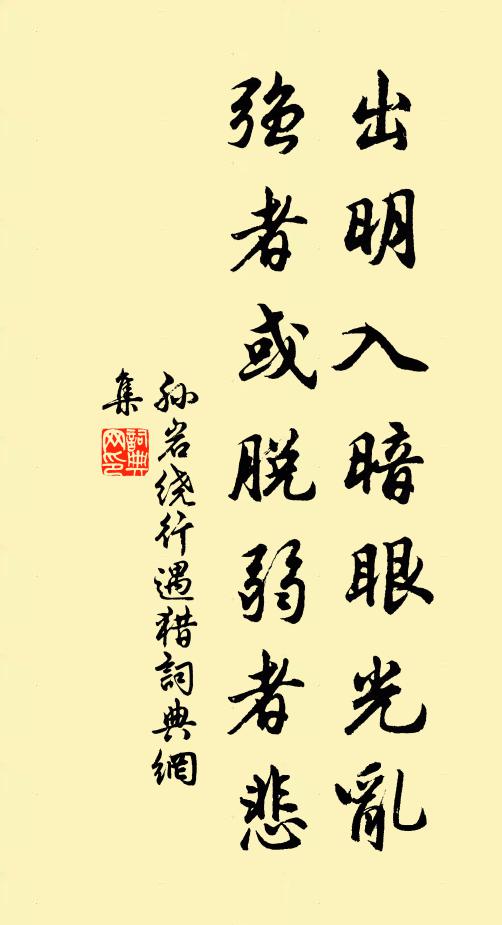 出明入暗眼光亂
强者或脱弱者悲
孙岩绕行遇猎詞典網
集
詞典
网印